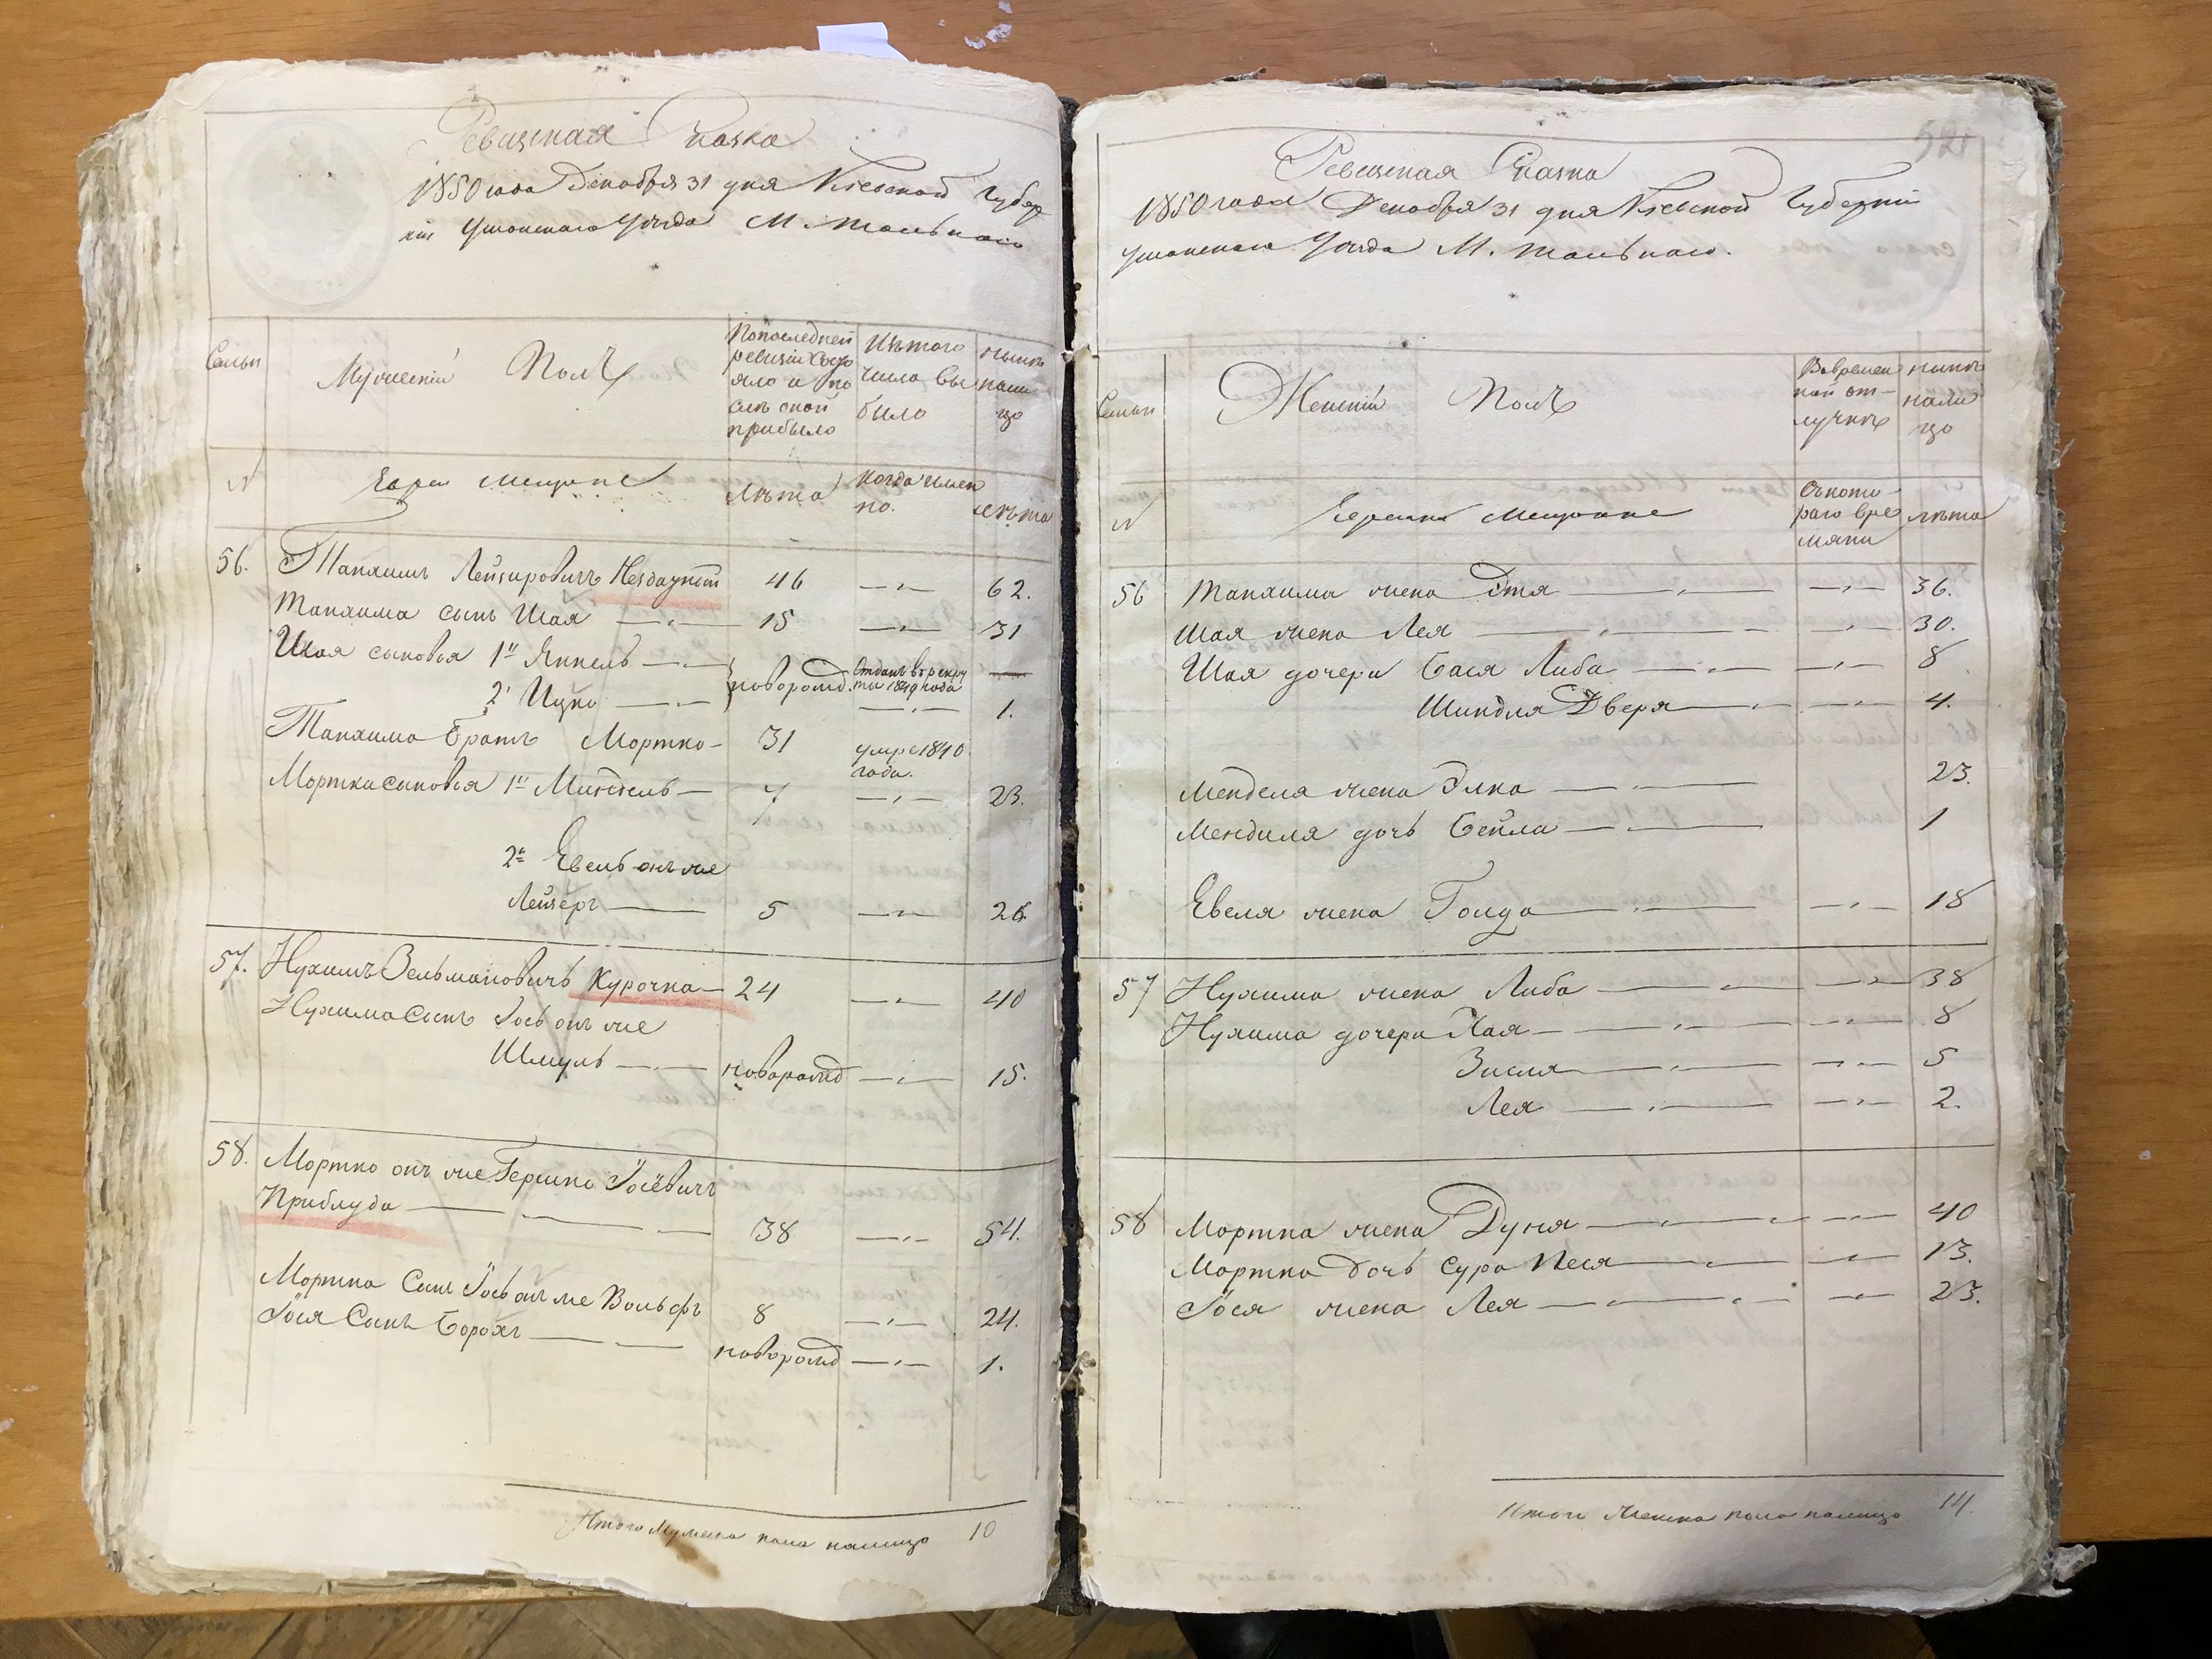 Ревизская Сказка
1850 года Декабря 31 дня Киевской Губер
нии Уманского Уезда М. Тального
Семьи
Мужеский Полъ
По последней
ревизіи состо
яло и по
слѣ оной
прибыло
Изъ того
числа вы
было
Нынѣ
нали
цо
N
Евреи мещане
лѣта
когда имен
но.
лѣта
56. Танхимъ Лейзировичъ 46 — 62.
Танхима сынъ Шая — 15 — 31
Шая сыновья 1й Янкель — новорожд. Отданъ въ рекру
ты 1849 года
2й Ицко — — 1.
Танхима братъ Мортко — 31 умре 1840
года.
Мортка сыновья 1й Мендель — 7 — 23.
2й Евель онъ же
Лейзеръ — 5 — 21
57. Нухимъ Зельмановичъ Курочка — 24 — 40
Нухима сынъ Іось онъ же
Шмуль — новорожд — 15.
58. Мортко онъ же Гершко Іосевичъ
Приблуда — 38 — 54.
Мортка Сынъ Іось онъ же Вольфъ 8 — 24.
Іося Сынъ Борохъ — новорожд — 1.
Итого мужеска пола налицо 10
521
Ревизская Сказка
1850 года Декабря 31 дня Киевской Губерніи
Уманского Уезда М. Тального.
Семьи
Женскій Полъ
Во времен
ной от-
лучкѣ
Нынѣ
нали
цо
N
Еврейки Мещанке
Съ кото-
раго вре
мяни
лѣта
56 Танхима жена Этя — 36.
Шая жена Лея — 30.
Шая дочери Бася Либа — 8
Шиндля Дверя — 4.
Менделя жена Элка — 23.
Менделя дочь Бейла — 1
Евеля жена Голда — 18
57 Нухима жена Либа — 38
Нухима дочери Хая — 8
Зисля — 5
Лея — 2.
58 Мортка жена Дуня — 40
Мортка дочь Сура Песя — 13.
Іося жена Лея — 23.
Итого Женска пола налицо 14.